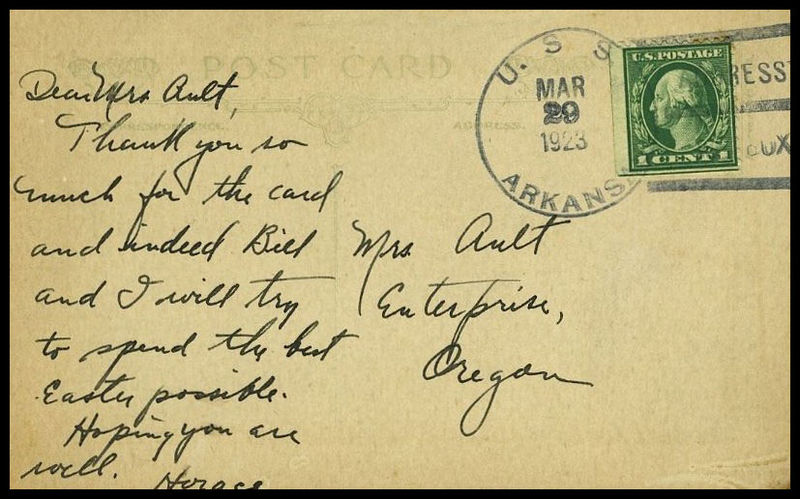 POST CARD
CORRESPONDENCE.
ADDRESS.
U.S.S.
MAR
29
1923
ARKANS
RESS
U.S. POSTAGE
1 CENT 1
Dear Mrs Ault,
Thank you so
much for the card
and indeed Bill
and I will try
to spend the best
Easter possible.
Hoping you are
well.
Horace
Mrs Ault
Enterprise,
Oregon